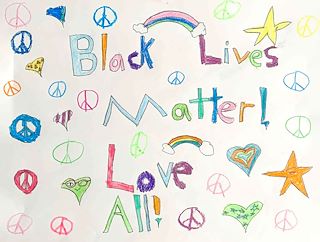 Black Lives
Matter!
Love
All!